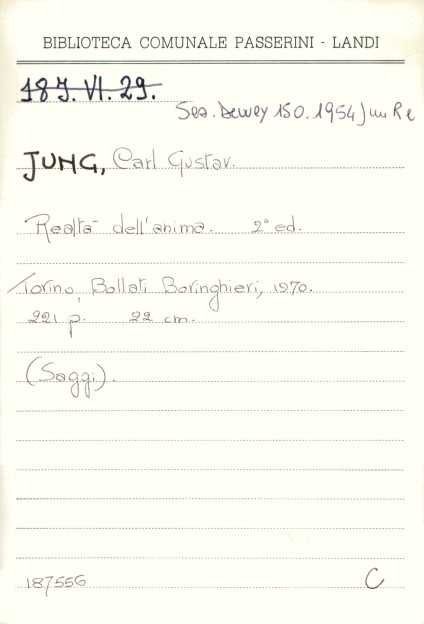 BIBLIOTECA COMUNALE PASSERINI - LANDI
187. VI. 29.
Sez. Dewey 150.1954 Jun Re
JUNG, Carl Gustav.
Realtà dell'anima. 2° ed.
Torino, Bollati Boringhieri, 1970.
221 p. 22 cm.
(Saggi).
187556 C